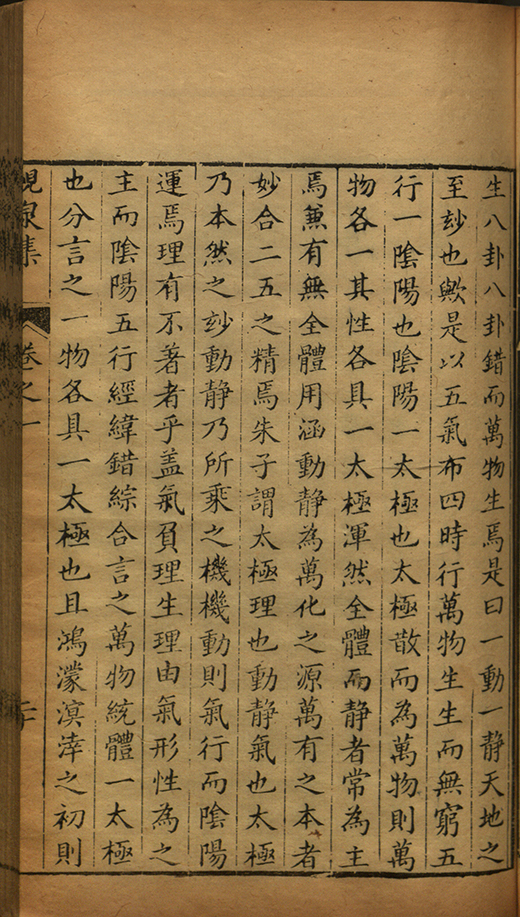 生八卦八卦錯而萬物生焉是曰一動一静天地之
至玅也歟是以五氣布四時行萬物生生而無窮五
行一陰陽也陰陽一太極也太極散而為萬物則萬
物各一其性各具一太極渾然全體而静者常為主
焉兼有無全體用涵動静為萬化之源萬有之本者
妙合二五之精焉朱子謂太極理也動静氣也太極
乃本然之玅動静乃所乘之機機動則氣行而陰陽
運焉理有不著者乎盖氣負理生理由氣形性為之
主而陰陽五行經緯錯綜合言之萬物統體一太極
也分言之一物各具一太極也且鴻濛溟涬之初則
峴泉集 卷之一 二